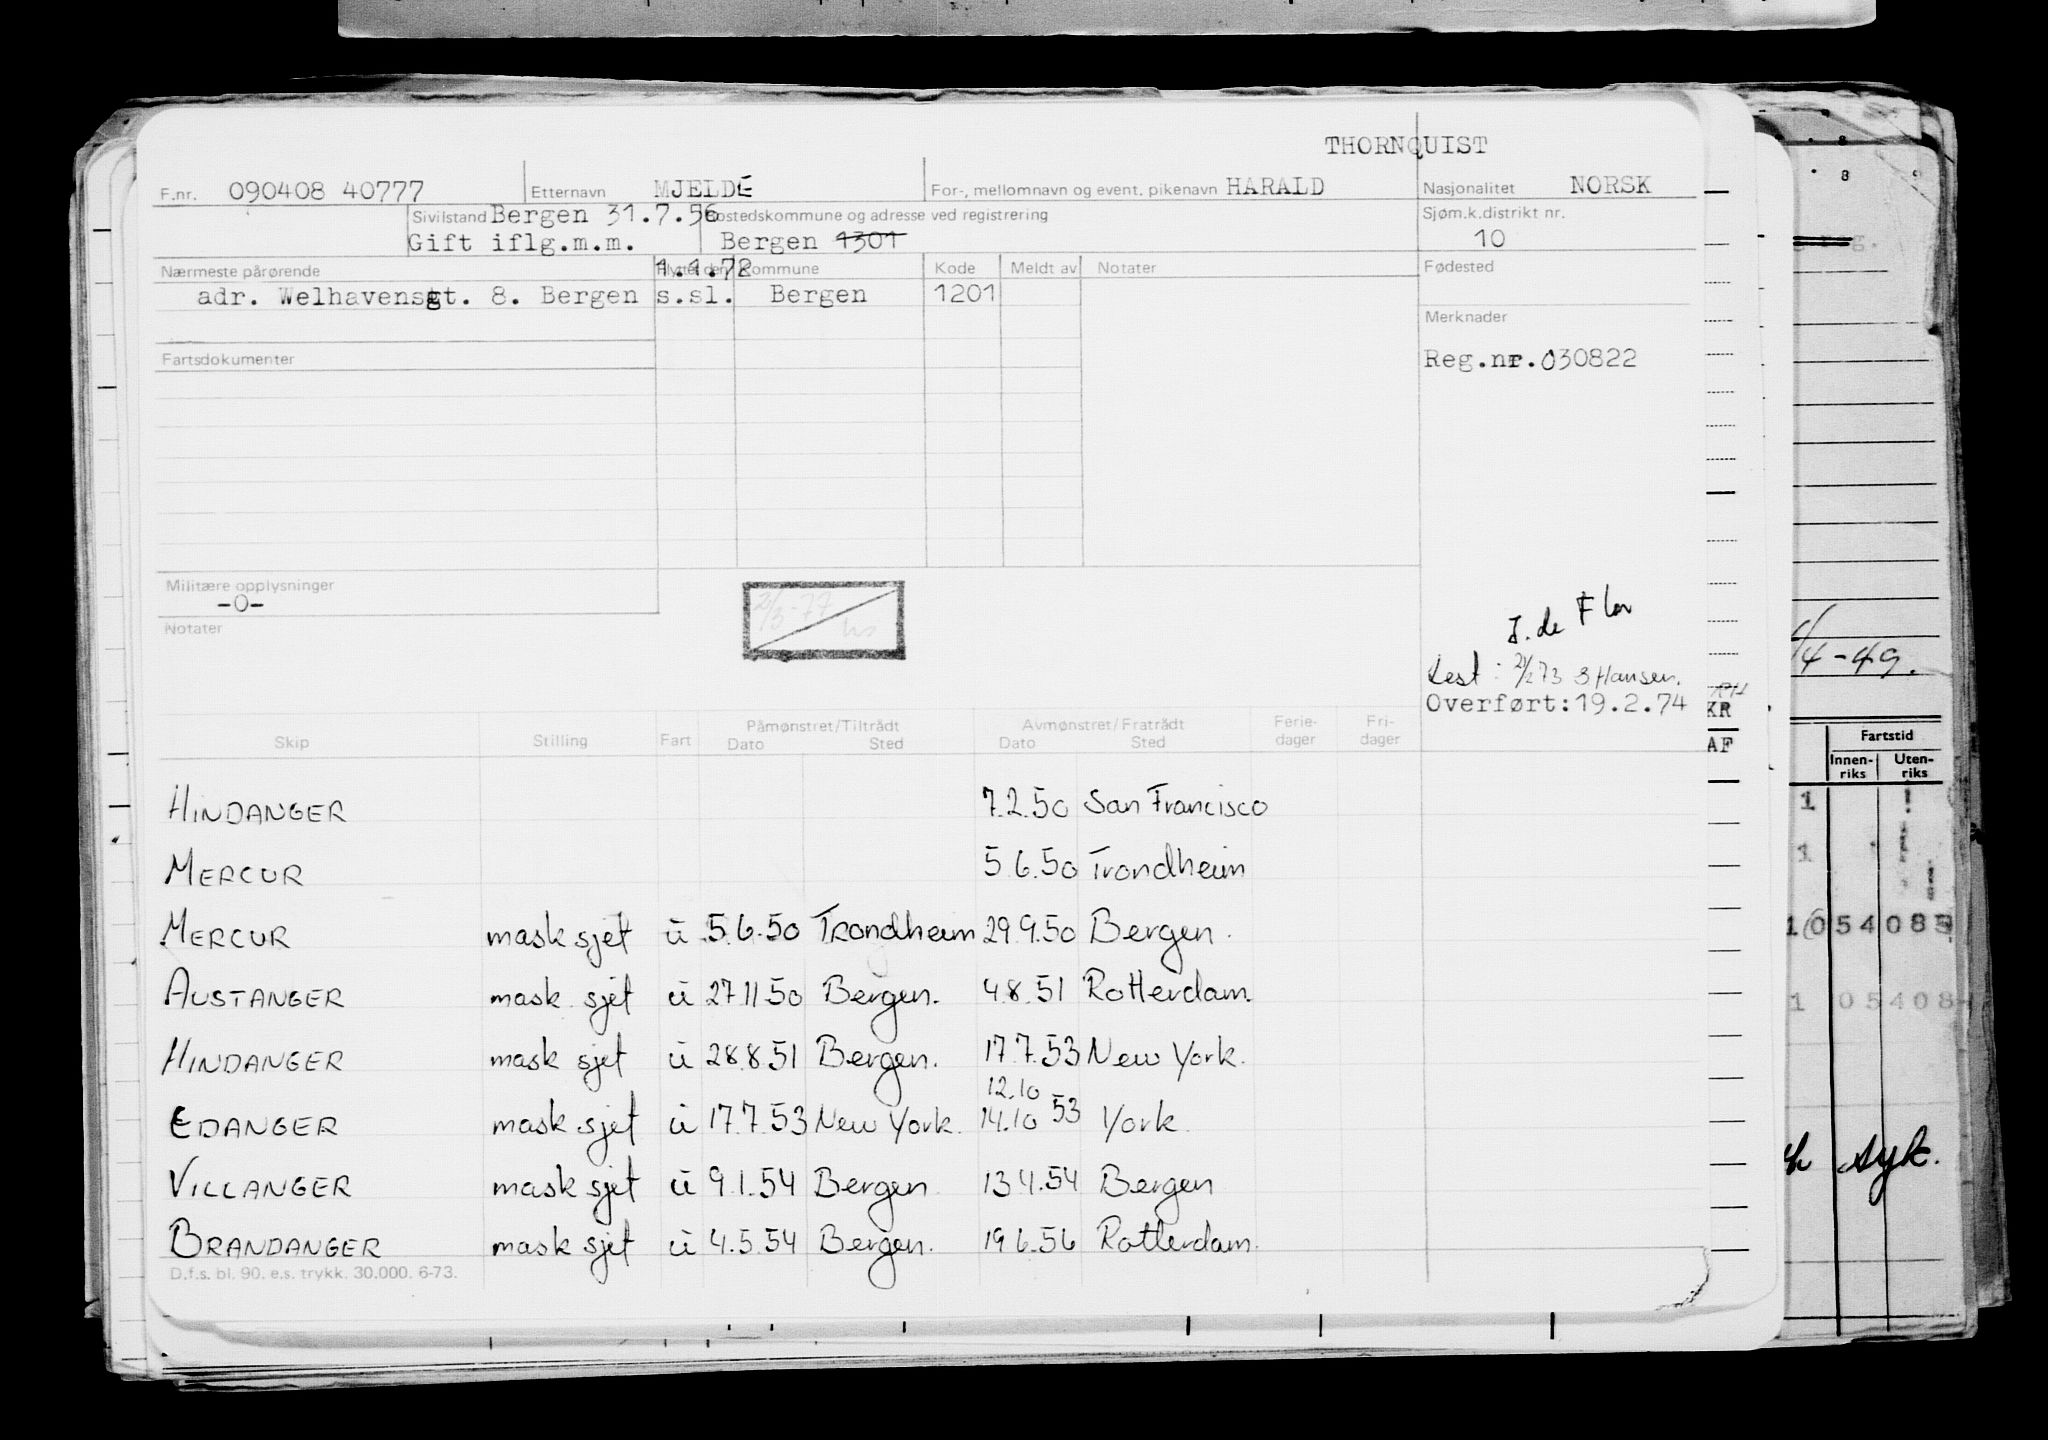 THORNQUIST
F.nr. 090408 40777 Etternavn MJELDE For-, mellomnavn og event. pikenavn HARALD Nasjonalitet NORSK
Sivilstand Bergen 31.7.56 Bostedskommune og adresse ved registrering Sjøm.k.distrikt nr.
Gift iflg.m.m. Bergen 1301 10
Nærmeste pårørende 1.1.72 Kommune Kode Meldt av Notater Fødested
adr. Welhavensgt. 8. Bergen s.sl. Bergen 1201
Merknader
Fartsdokumenter Reg.nr.030822
Militære opplysninger
-0-
Notater
J. de Flon
Lest: 21/2 73 S Hansen.
Overført:19.2.74
KR
AF
Skip Stilling Fart Påmønstret/Tiltrådt Avmønstret/Fratrådt Ferie-dager Fri-dager
Dato Sted Dato Sted
HINDANGER 7.2.50 San Francisco
MERCUR 5.6.50 Trondheim
MERCUR mask sjef u 5.6.50 Trondheim 29.9.50 Bergen.
AUSTANGER mask sjef u 27.11.50 Bergen. 4.8.51 Rotterdam.
HINDANGER mask sjef u 28.8.51 Bergen. 17.7.53 New York.
12.10
EDANGER mask sjef u 17.7.53 New York. 14.10 53 York.
VILLANGER mask sjef u 9.1.54 Bergen 13.4.54 Bergen
BRANDANGER mask sjef u 4.5.54 Bergen. 19.6.56 Rotterdam.
D.f.s. bl. 90. e.s. trykk. 30.000. 6-73.
/4-49.
Fartstid
Innen-riks Uten-riks
1
1
54 08
1 05408
syk.